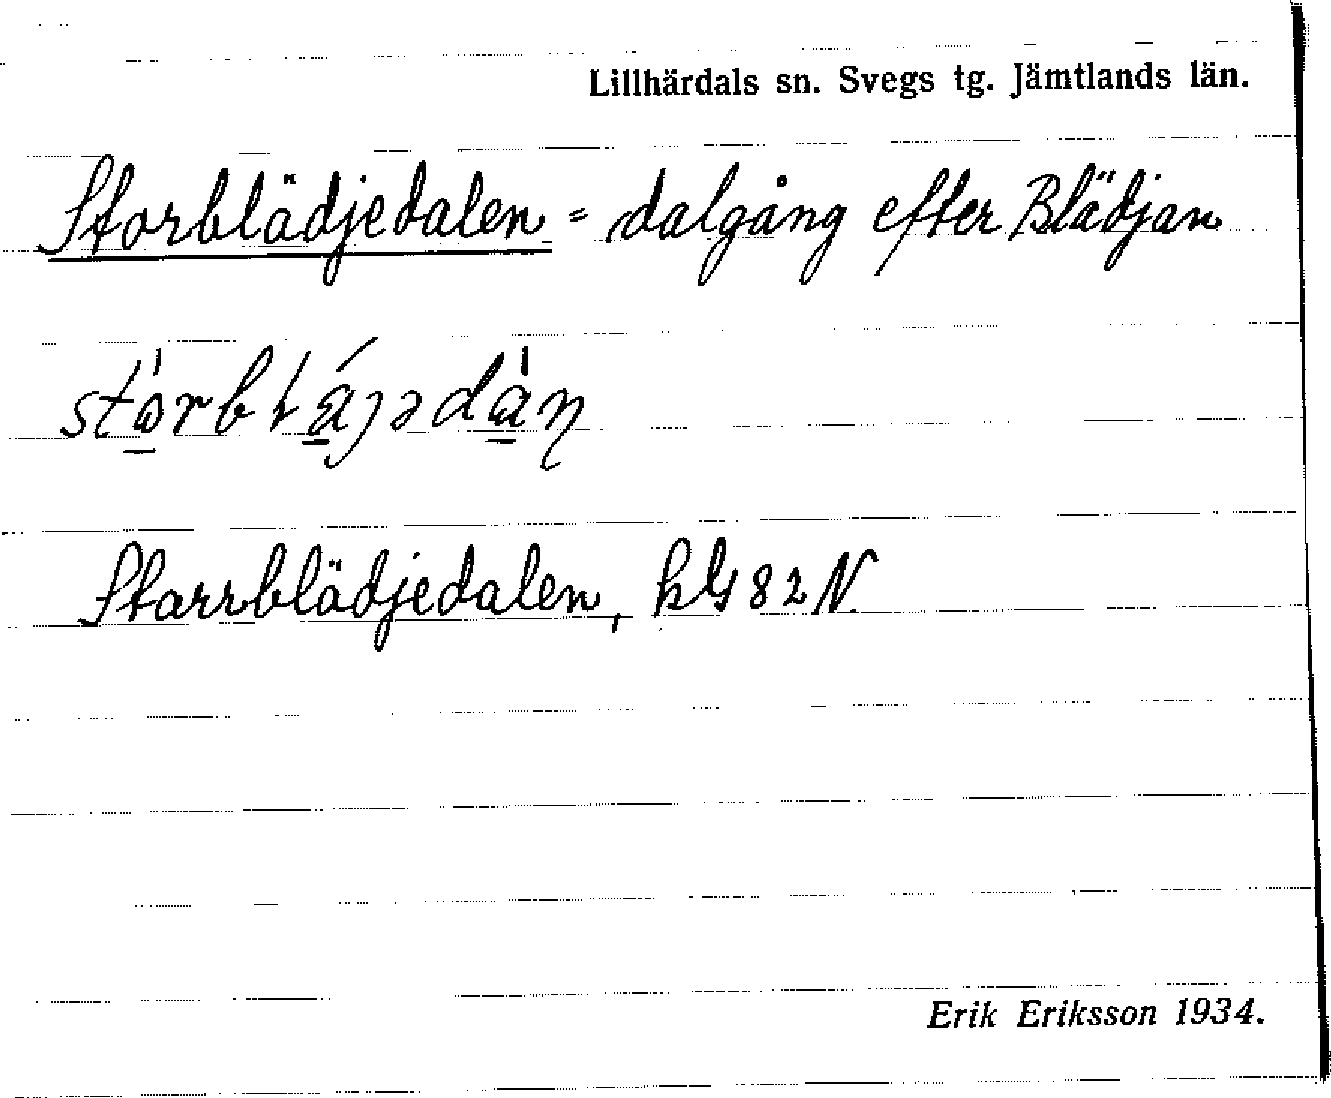 Lillhärdals sn. Svegs tg. Jämtlands län.
Storblädjedalen = dalgång efter Blädjan
Starrblädjedalen, kG 82 N.
Erik Eriksson 1934.